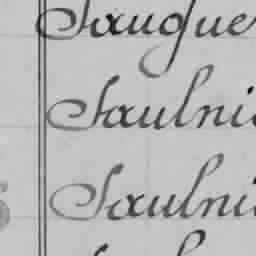 Sauque
Saulni
Saulni